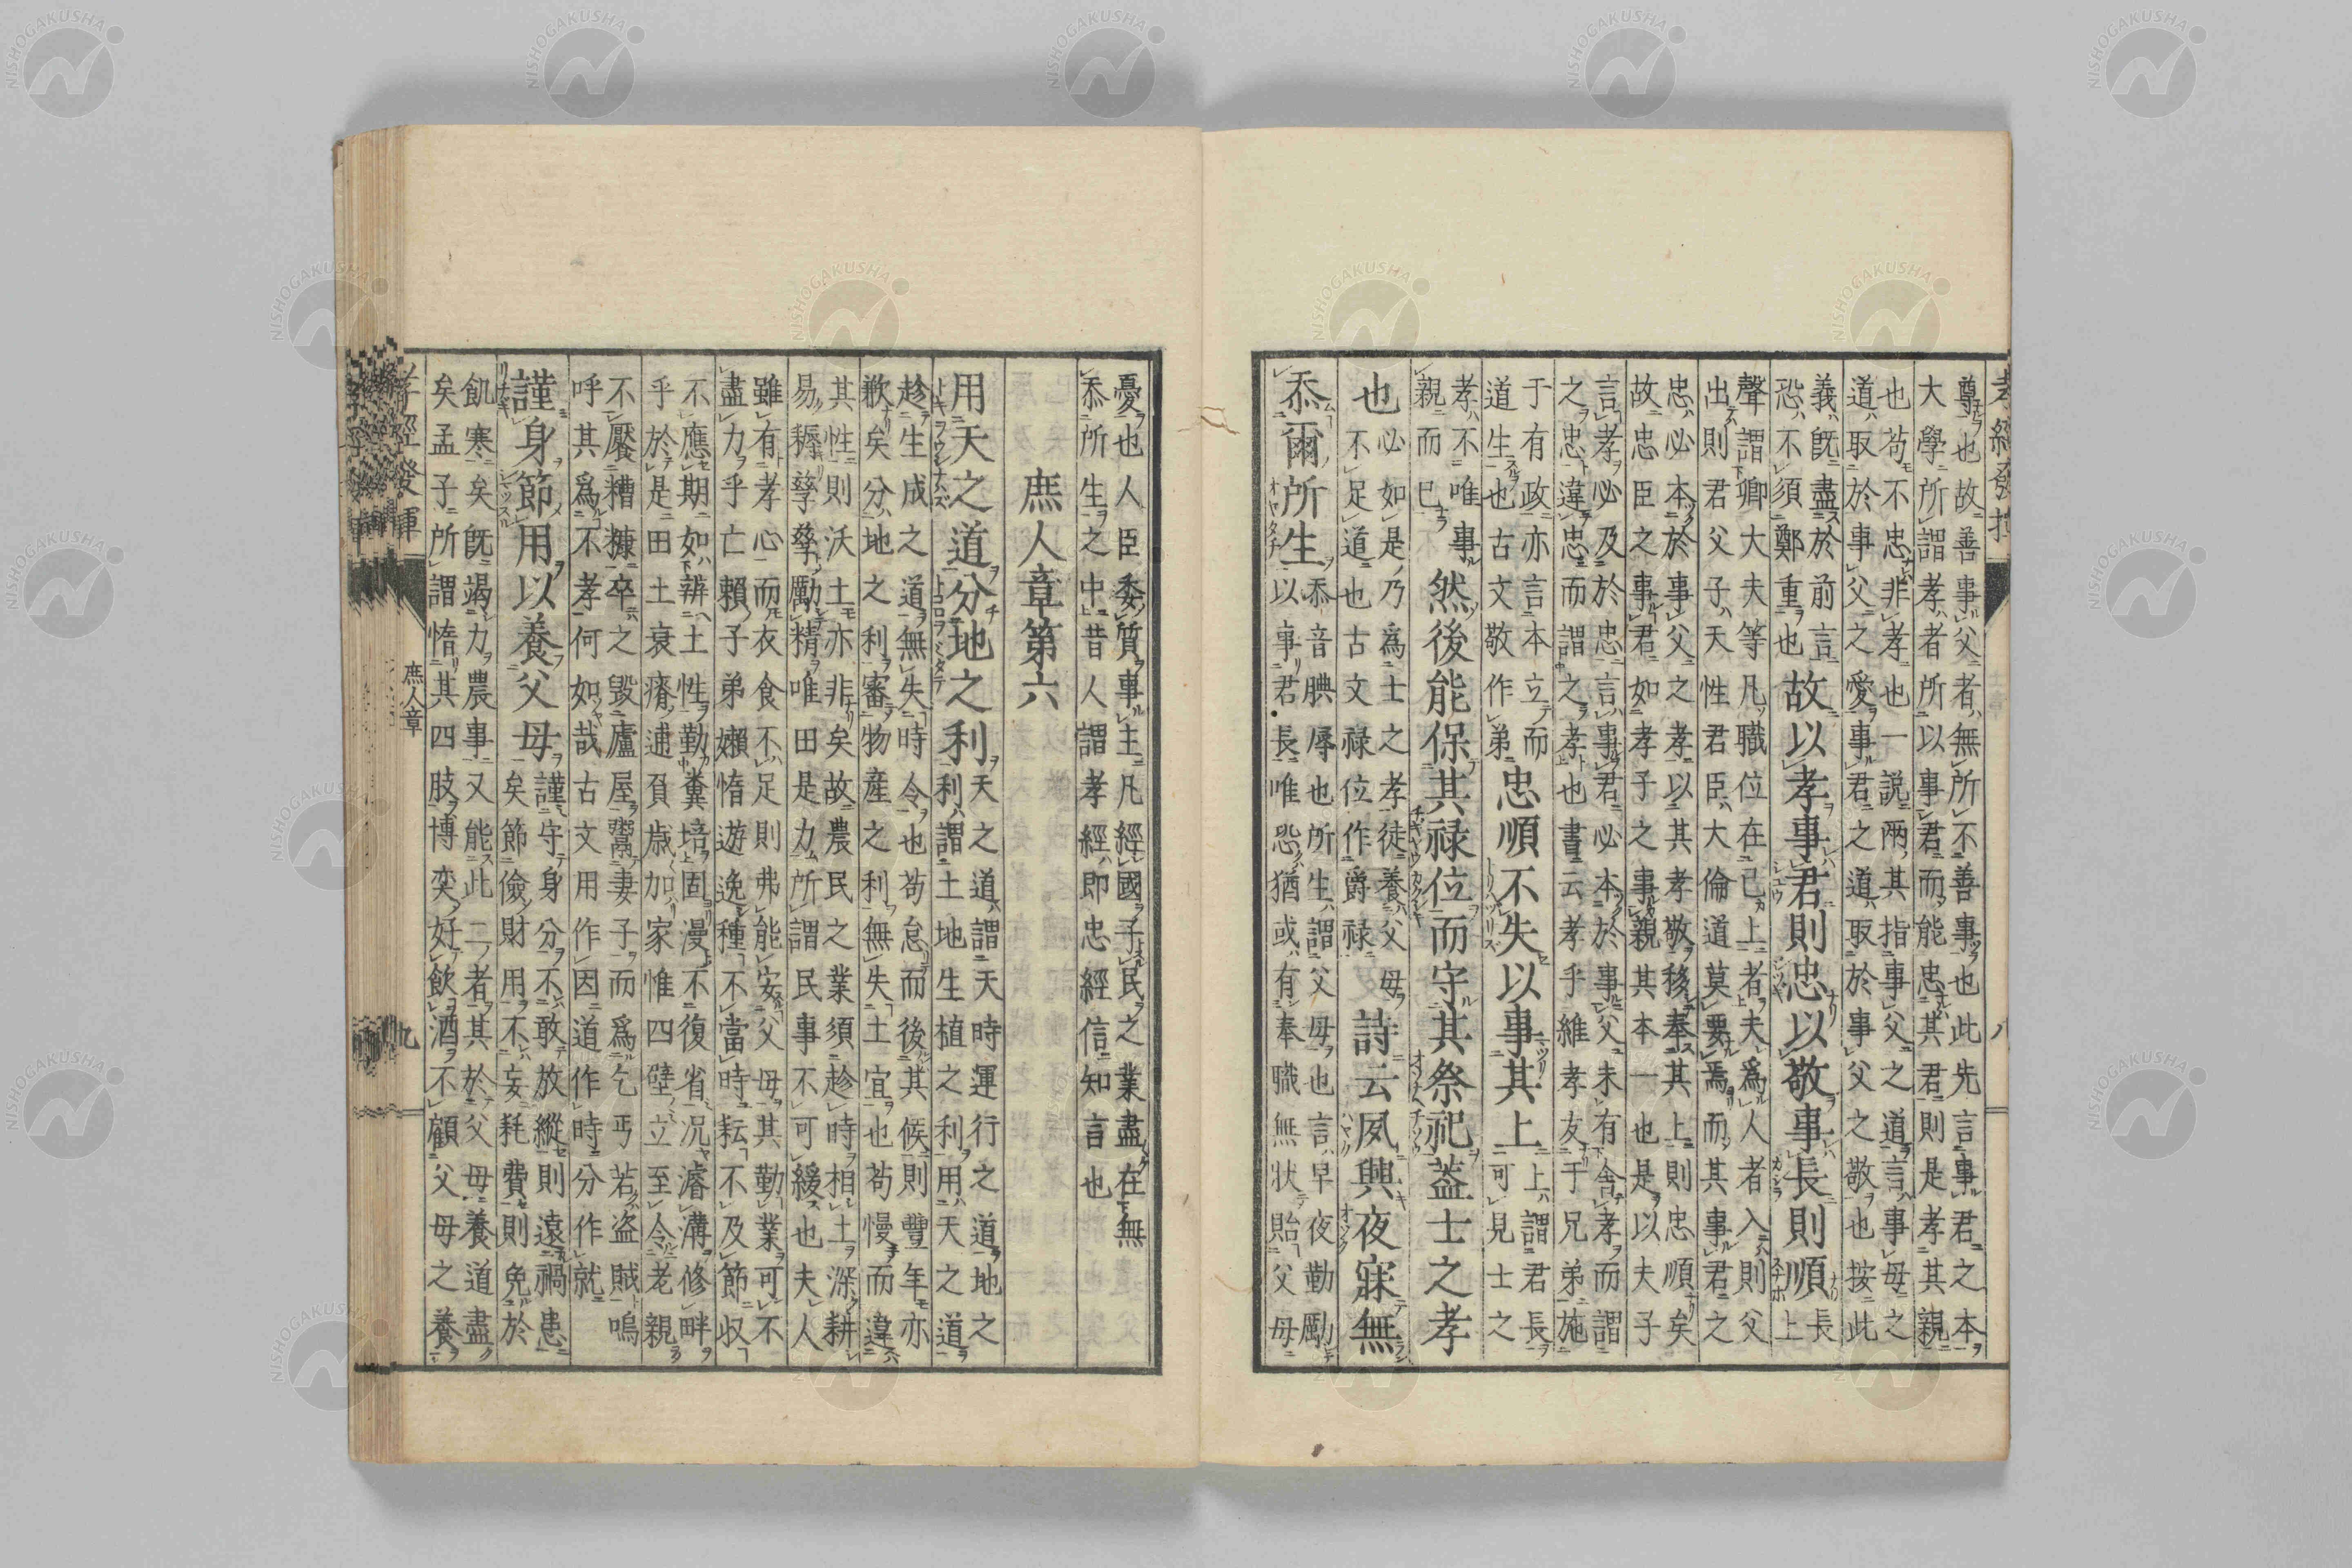 孝經發揮 八
尊也故善事父者無所不善事也此先言事君之本
大學所謂孝者所以事君而能忠其君則是孝其親
也苟不忠非孝也一說兩其指事父之道言事母之
道取於事父之愛事君之道取於事父之敬也按此
義既盡於前言
恐不須鄭重也
故以孝事君則忠以敬事長則順
長
上
聲謂卿大夫等凡職位在己上者夫爲人者入則父
出則君父子天性君臣大倫道莫要焉而其事君之
忠必本於事父之孝以其孝敬移奉其上則忠順矣
故忠臣之事君如孝子之事親其本一也是以夫子
言孝必及於忠言事君必本於事父未有舍孝而謂
之忠違忠而謂之孝也書云孝乎維孝友于兄弟施
于有政亦言本立而
道生也古文敬作弟
忠順不失以事其上
上謂君長
可見士之
孝不唯事
親而已
然後能保其祿位而守其祭祀蓋士之孝
也
必如是乃爲士之孝徒養父母
不足道也古文祿位作爵祿
詩云夙興夜寐無
忝爾所生
忝音腆辱也所生謂父母也言早夜勤勵
以事君長唯恐猶或有奉職無狀貽父母
憂也人臣委質事主凡經國子民之業盡在無
忝所生之中昔人謂孝經即忠經信知言也
庶人章第六
用天之道分地之利
天之道謂天時運行之道地之
利謂土地生植之利用天之道
趁生成之道無失時令也苟怠而後其候則豐年亦
歉矣分地之利審物產之利無失土宜也苟慢而違
其性則沃土亦非矣故農民之業須趁時相土深耕
易耨孳孳勵精唯田是力所謂民事不可緩也夫人
雖有孝心而衣食不足則弗能安父母其勤業可不
盡力乎亡賴子弟嬾惰遊逸種不當時耘不及節收
不應期如辨土性勤糞培固漫不復省况濬溝修畔
乎於是田土衰瘠逋負歲加家惟四壁立至令老親
不饜糟糠卒之毀廬屋鬻妻子而爲乞丐若盜賊嗚
呼其爲不孝何如哉古文用作因道作時分作就
謹身節用以養父母
謹守身分不敢放縱則遠禍患
矣節儉財用不妄耗費則免於
飢寒矣既竭力農事又能此二者其於父母養道盡
矣孟子所謂惰其四肢博奕好飲酒不顧父母之養
孝經發揮 庶人章 九